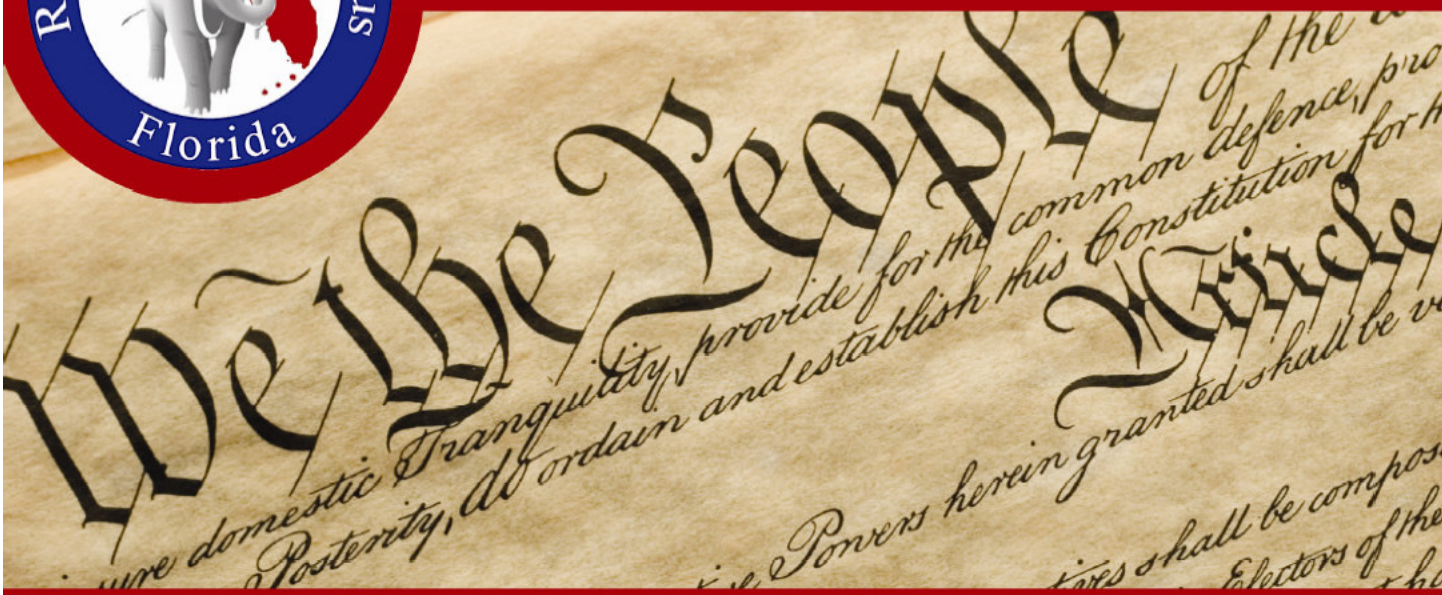 Florida
We the People of the
domestic Tranquility, provide for the common defence,
Posterity, do ordain and establish this Constitution for
Article
Powers herein granted shall be
shall be
Electors of the